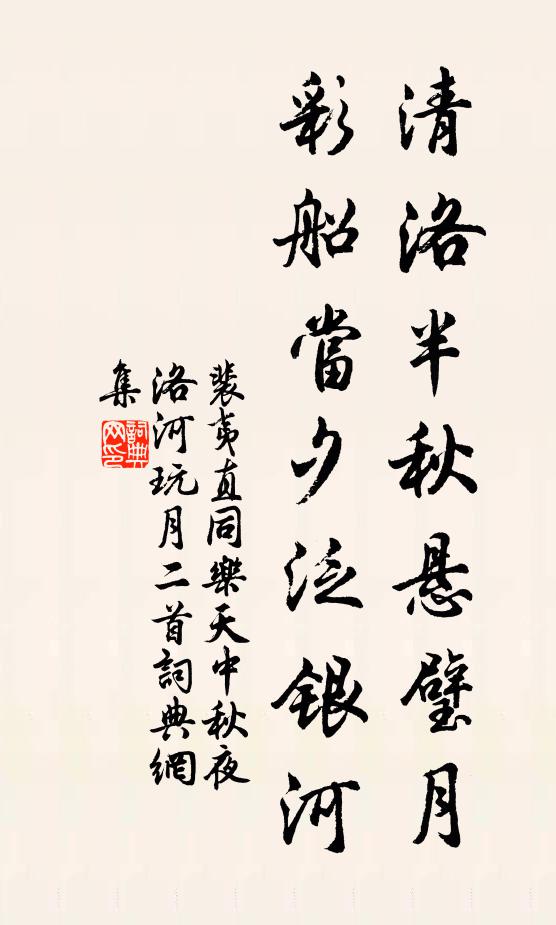 清洛半秋悬璧月
彩船當夕泛銀河
裴夷直同樂天中秋夜
洛河玩月二首詞典網
集
詞典网印